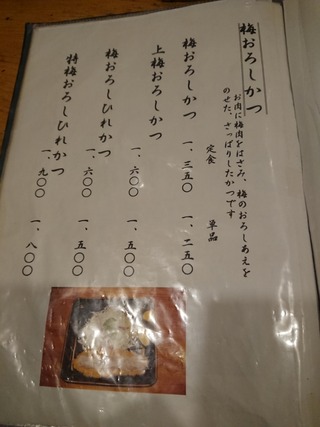 梅おろしかつ
お肉に梅肉をはさみ、梅のおろしあえを
のせた、さっぱりしたかつです
定食 単品
梅おろしかつ 一、三五〇 一、二五〇
上梅おろしかつ 一、六〇〇 一、五〇〇
梅おろしひれかつ 一、六〇〇 一、五〇〇
特梅おろしひれかつ 一、九〇〇 一、八〇〇